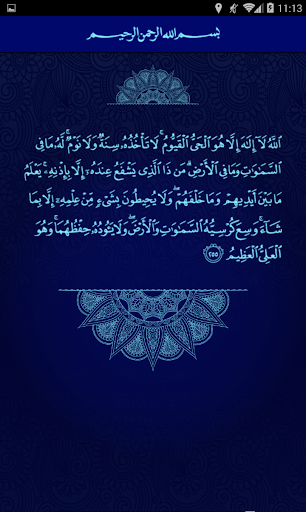 11:13
بسم الله الرحمن الرحيم
ٱللَّهُ لَآ إِلَٰهَ إِلَّا هُوَ ٱلْحَىُّ ٱلْقَيُّومُ ۚ لَا تَأْخُذُهُۥ سِنَةٌ وَلَا نَوْمٌ ۚ لَّهُۥ مَا فِى
ٱلسَّمَٰوَٰتِ وَمَا فِى ٱلْأَرْضِ ۗ مَن ذَا ٱلَّذِى يَشْفَعُ عِندَهُۥٓ إِلَّا بِإِذْنِهِۦ ۚ يَعْلَمُ
مَا بَيْنَ أَيْدِيهِمْ وَمَا خَلْفَهُمْ ۖ وَلَا يُحِيطُونَ بِشَىْءٍ مِّنْ عِلْمِهِۦٓ إِلَّا بِمَا
شَآءَ ۚ وَسِعَ كُرْسِيُّهُ ٱلسَّمَٰوَٰتِ وَٱلْأَرْضَ ۖ وَلَا يَـُٔودُهُۥ حِفْظُهُمَا ۚ وَهُوَ
ٱلْعَلِىُّ ٱلْعَظِيمُ ٢٥٥